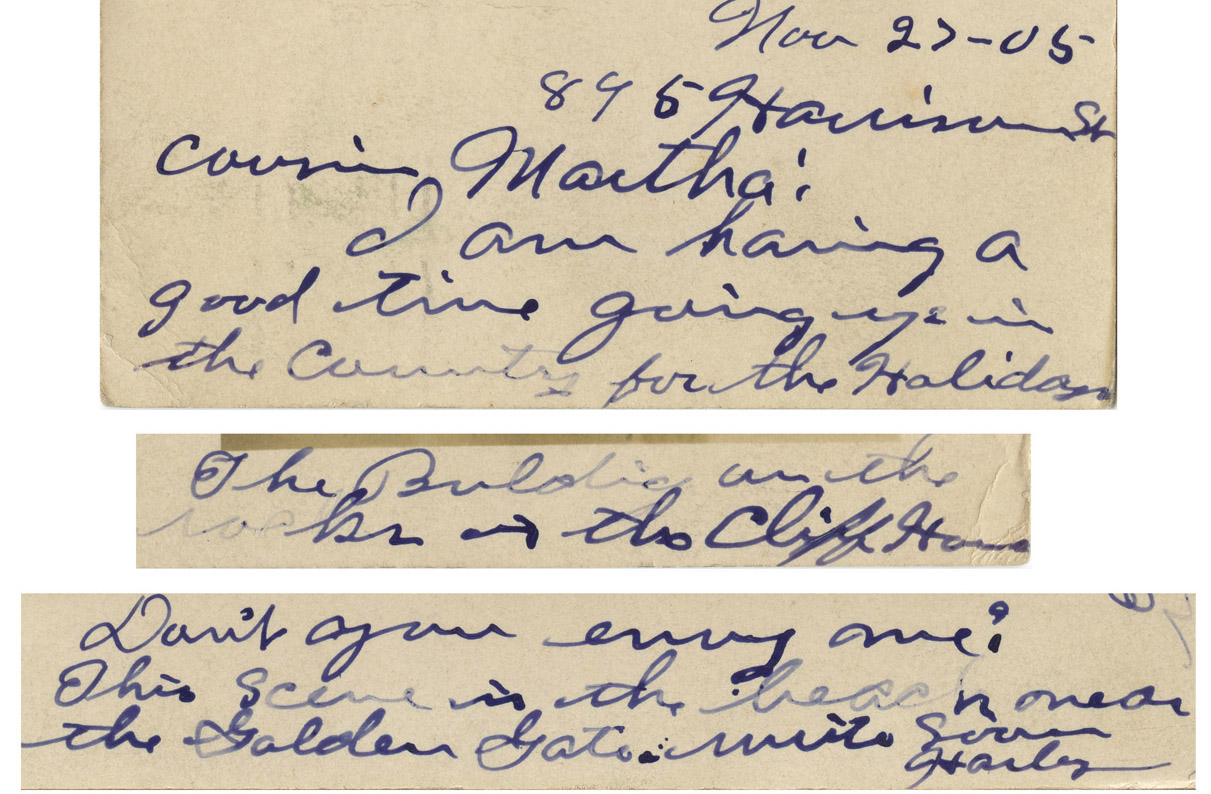 Nov 27-05
895 Harrison St
Cousin Martha:
I am having a
good time going up in
the Country for the Holidays
The Buldig on the
rocks is the Cliff House
Don't you envy me?
This scene is the beach near
the Golden Gate. write Soon
Harley